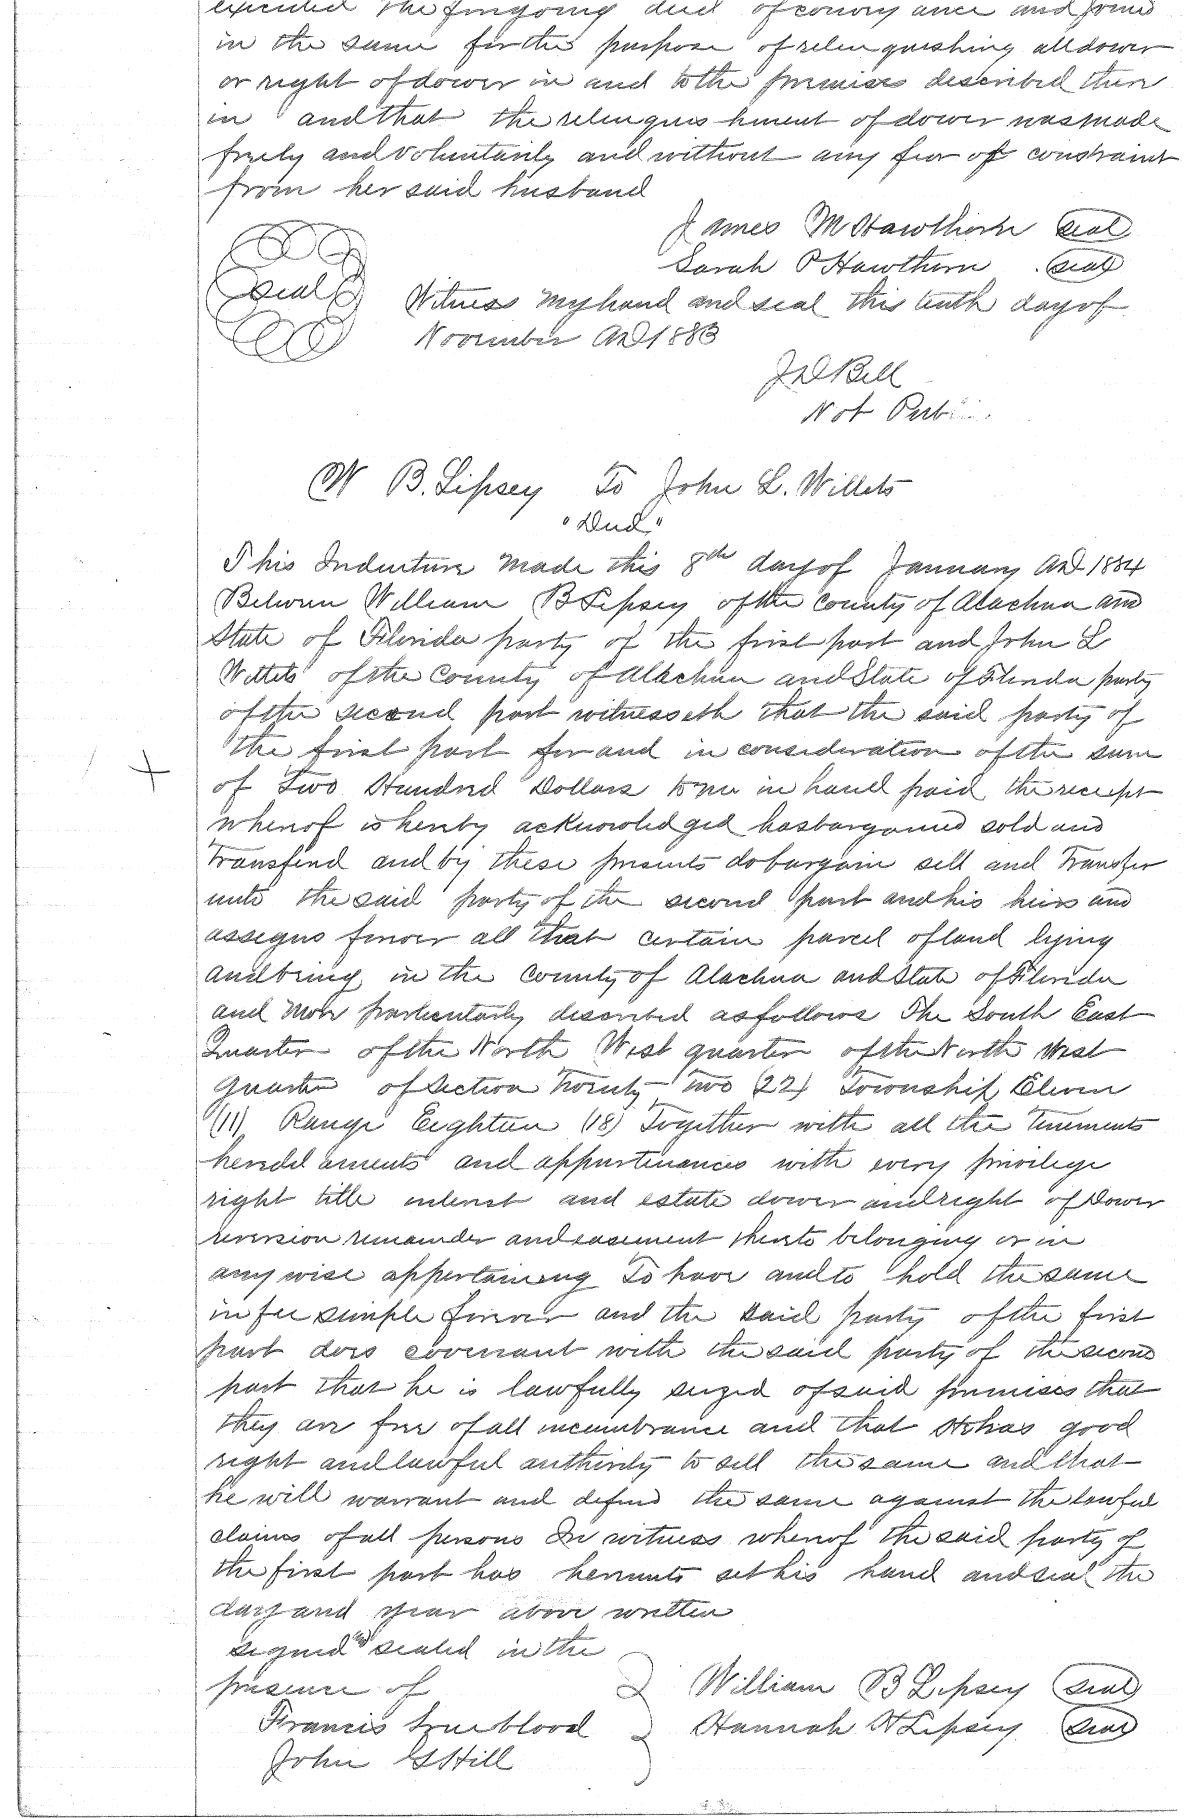 executed the foregoing deed of conveyance and joined
in the same for the purpose of relenquishing all dower
or right of dower in and to the premises described there
in and that the relenquishment of dower was made
freely and voluntarily and without any fear of constraint
from her said husband
James M Hawthorn seal
Sarah P Hawthorn seal
seal
Witness my hand and seal this tenth day of
November AD 1883
J D Bell
Not Pub
W B. Lipsey To John L. Willets
"Deed"
This Indenture made this 8th day of January AD 1884
Between William B Lipsey of the county of Alachua and
State of Florida party of the first part and John L
Willets of the County of Alachua and State of Florida party
of the second part witnesseth that the said party of
the first part for and in consideration of the sum
of Two Hundred Dollars to me in hand paid the receipt
whereof is hereby acknowledged has bargained sold and
Transfered and by these presents do bargain sell and Transfer
unto the said party of the second part and his heirs and
assegns forever all that certain parcel of land lying
and being in the County of Alachua and State of Florida
and more particularly described as follows The South East
Quarter of the North West quarter of the North West
quarter of Section Twenty Two (22) Township Eleven
(11) Range Eighteen (18) Together with all the Tenements
heredetaments and appurtenances with every privilege
right title interest and estate dower and right of Dower
reversion remainder and easement thereto belonging or in
any wise appertaining To have and to hold the same
in fee simple forever and the said party of the first
part does covenant with the said party of the second
part that he is lawfully seized of said premises that
they are free of all incumbrance and that He has good
right and lawful authority to sell the same and that
he will warrant and defend the same against the lawful
claims of all persons In witness whereof the said party of
the first part has hereunto set his hand and seal the
day and year above written
signed and sealed in the
presence of
William B Lipsey seal
Francis Trueblood
Hannah H Lipsey seal
John G Hill